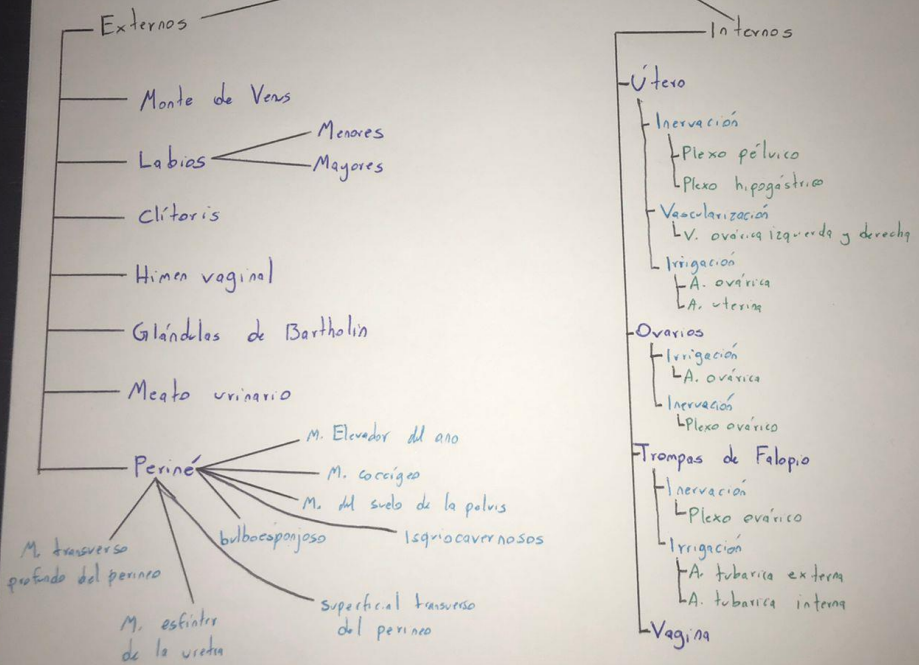 Externos
Monte de Venus
Labios
Menores
Mayores
Clítoris
Himen vaginal
Glándulas de Bartholin
Meato urinario
Periné
M. Elevador del ano
M. coccígeo
M. del suelo de la pelvis
Isquiocavernosos
bulboesponjoso
superficial transverso
del perineo
M. esfínter
de la uretra
M. transverso
profundo del perineo
Internos
Útero
Inervación
Plexo pélvico
Plexo hipogástrico
Vascularización
V. ovárica izquierda y derecha
Irrigación
A. ovárica
A. uterina
Ovarios
Irrigación
A. ovárica
Inervación
Plexo ovárico
Trompas de Falopio
Inervación
Plexo ovárico
Irrigación
A. tubarica externa
A. tubarica interna
Vagina